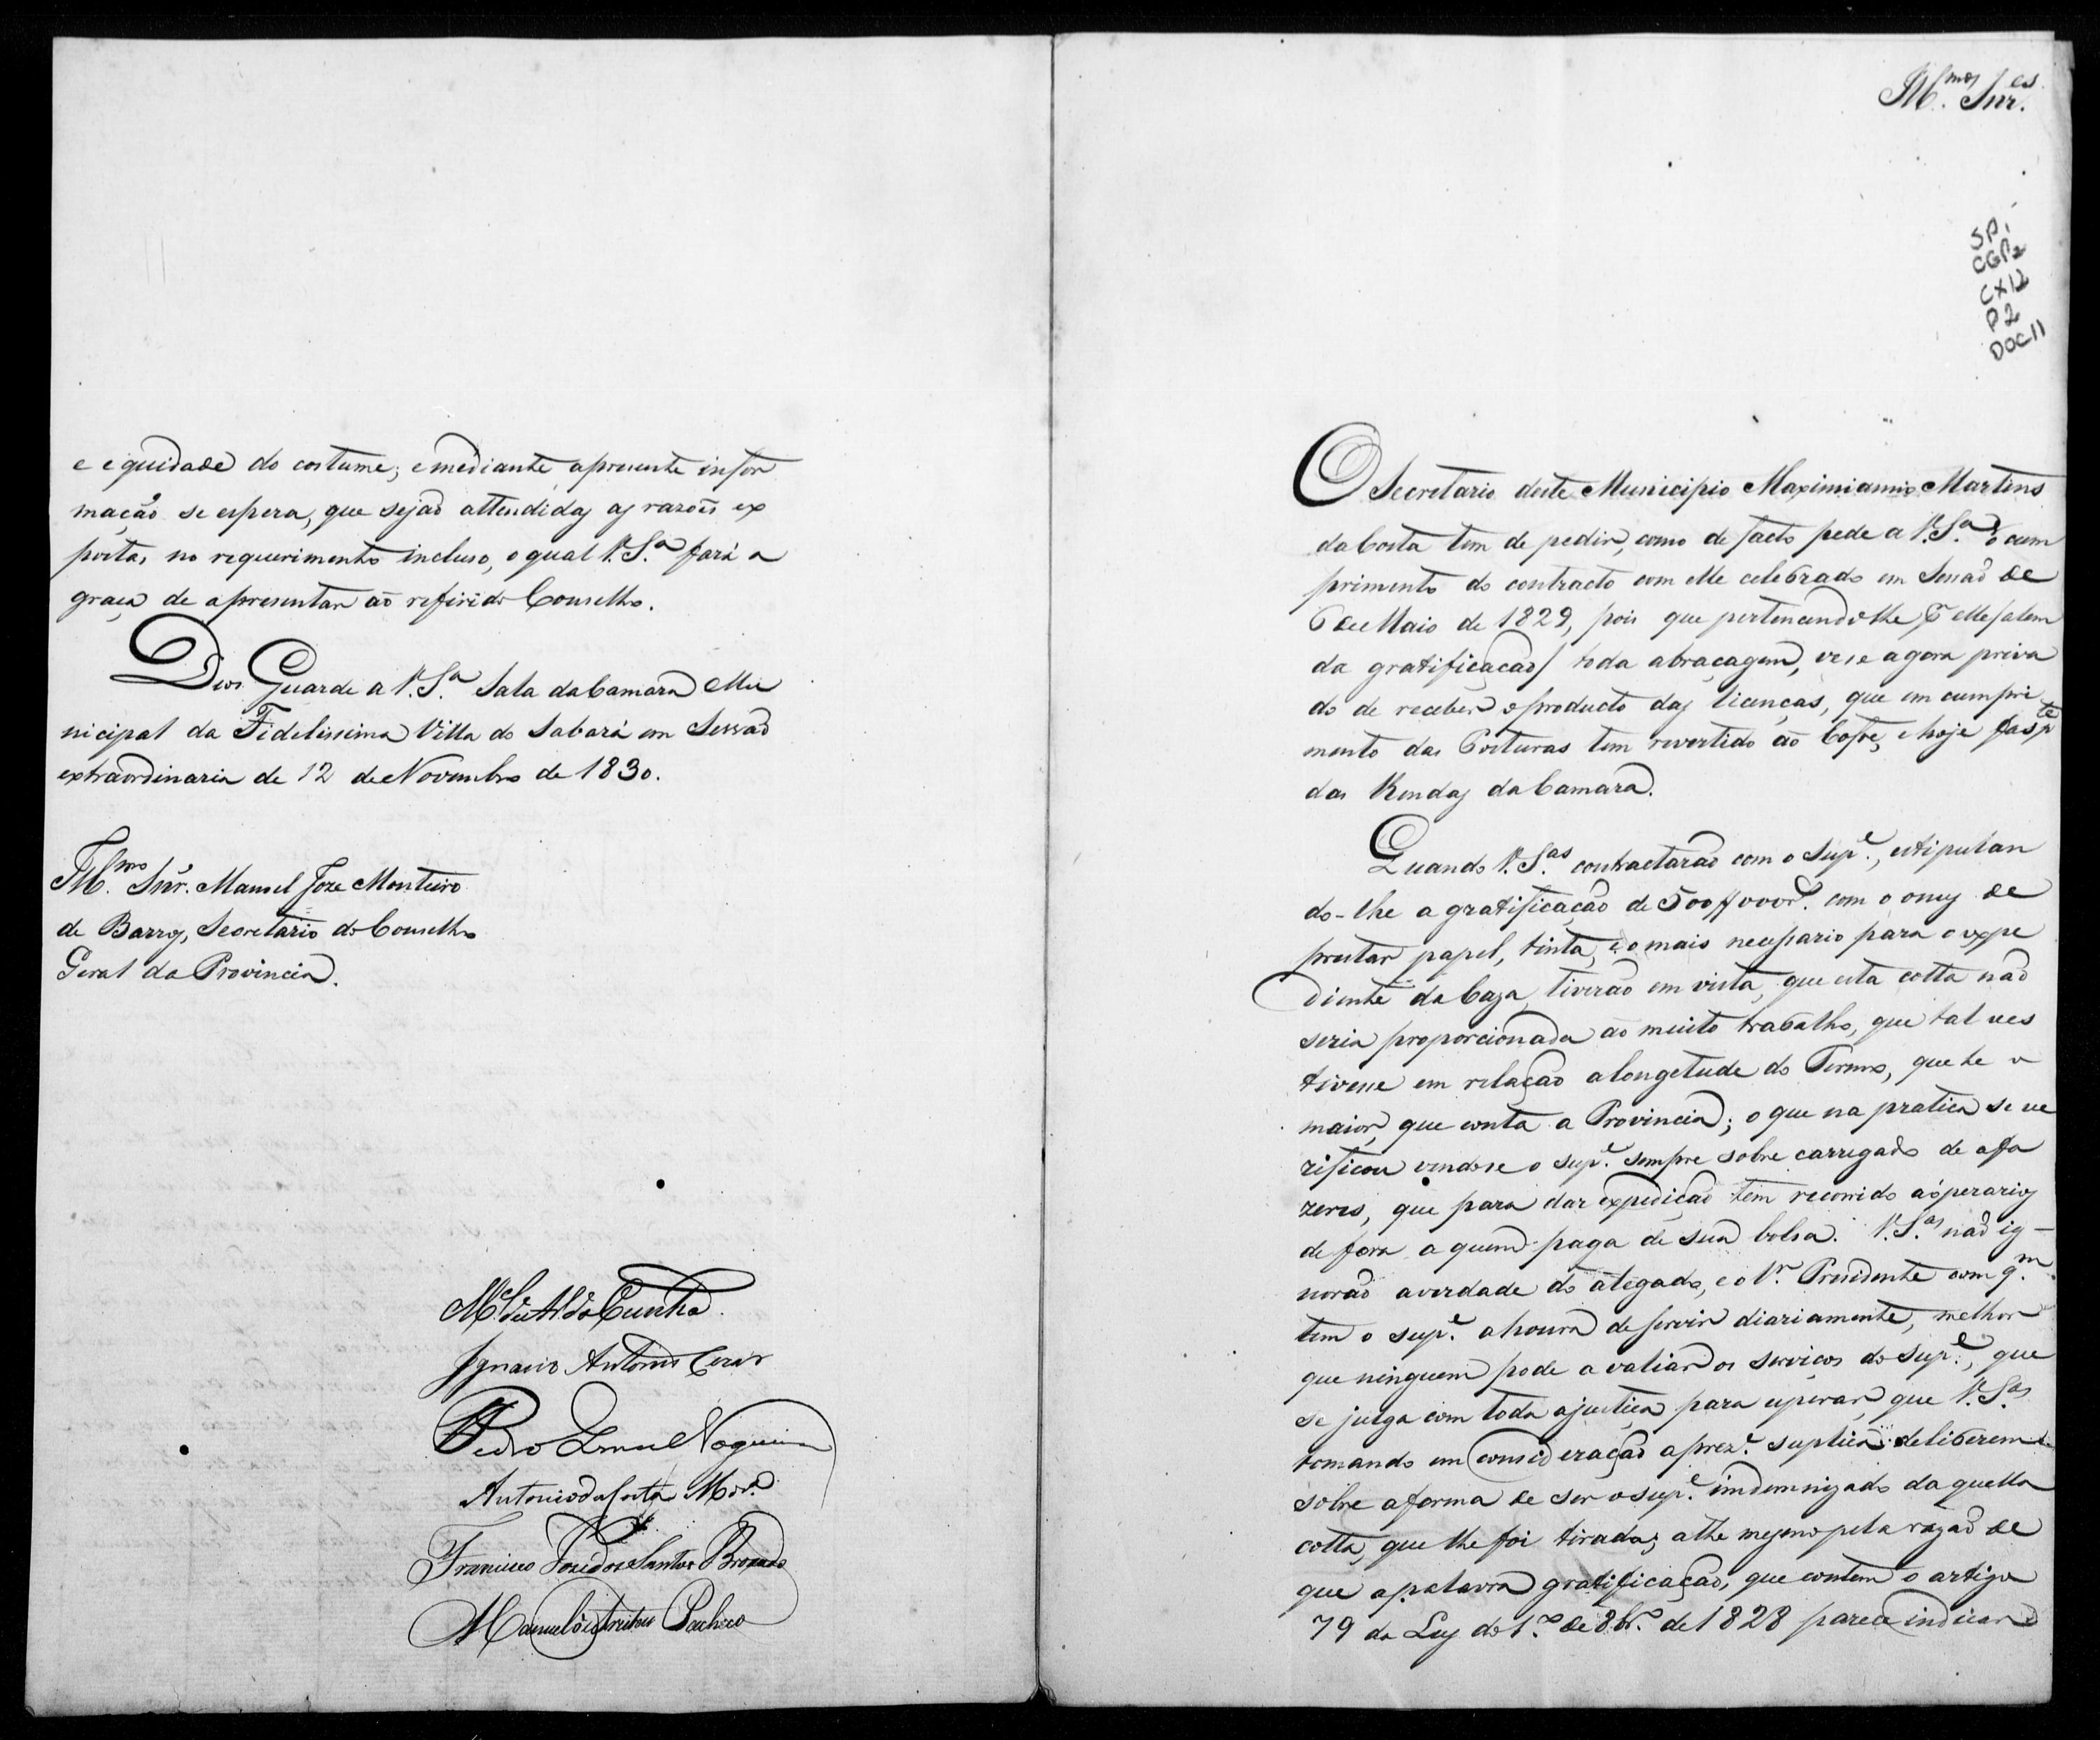 e equidade do costume; e mediante apresente infor
mação se espera, que sejaõ attendidas as razoẽs ex
postas no requerimento incluso, o qual V. S.ª fará a
graça de apresentar aõ referido Conselho.
Deos Guarde a V. S.ª Sala da Camara Mu
nicipal da Fidelissima Villa do Sabará em Sessaõ
extraordinaria de 12 de Novembro de 1830.
Ill.mo Snr. Manoel Joze Monteiro
de Barros, Secretario do Conselho
Geral da Provincia.
M.el de Ar.º da Cunha
Ignacio Antonio Cezar
Pedro Nogueira
Antonio da Costa Mor.ª
Francisco Joze dos Santos Brochado
Manoel de Freitas Pacheco
Ill.mos Snr.es
SP,
CGP2
CX12
P2
DOC11
O Secretario deste Municipio Maximiano Martins
da Costa tem de pedir, como de facto pede a V. S.as o cum
primento do contracto com elle celebrado em Sessaõ de
6 de Maio de 1829, pois que pertencendo-lhe alem
da gratificaçaõ/ toda abraçagem, vese agora priva
do de receber o producto das licenças, que em cumpri
mento das Posturas tem revertido aõ Cofre, e hoje fas p.te
das Rendas da Camara.
Quando V. S.as contractaraõ com o Sup.e, estipulan
do-lhe a gratificaçaõ de 500$000 r.s com o onus de
prestar papel, tinta, e o mais necessario para o expe
diente da Caza, tiveraõ em vista, que esta cotta naõ
seria proporcionada aõ muito trabalho, que tal ves
tivesse em relaçaõ alongetude do Termo, que he o
maior, que conta a Provincia; o que na pratica se ve
rificou vendose o sup.e sempre sobre carregado de afa
zeres, que para dar expediçaõ tem recorrido a óperarios
de fora a quem paga de sua bolsa. V. S.as naõ ig-
noraõ averdade do alegado, e o Sr. Presidente com q.m
tem o sup.e ahonra de servir diariamente, melhor
que ninguem pode avaliar os serviços do sup.e, que
se julga com toda ajustiça para esperar, que V. S.as
tomando em consideraçaõ aprez.e suplica deliberem
sobre aforma de ser o sup.e indemnizado da quella
cotta, que lhe foi tirada; athe mesmo pela razaõ de
que apalavra gratificaçaõ, que contem o artigo
79 da Ley do 1.º de 8br.º de 1828 parece indicar